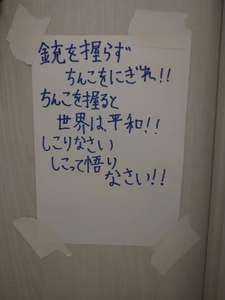 銃を握らず
ちんこをにぎれ!!
ちんこを握ると
世界は平和!!
しこりなさい
しこって悟り
なさい!!